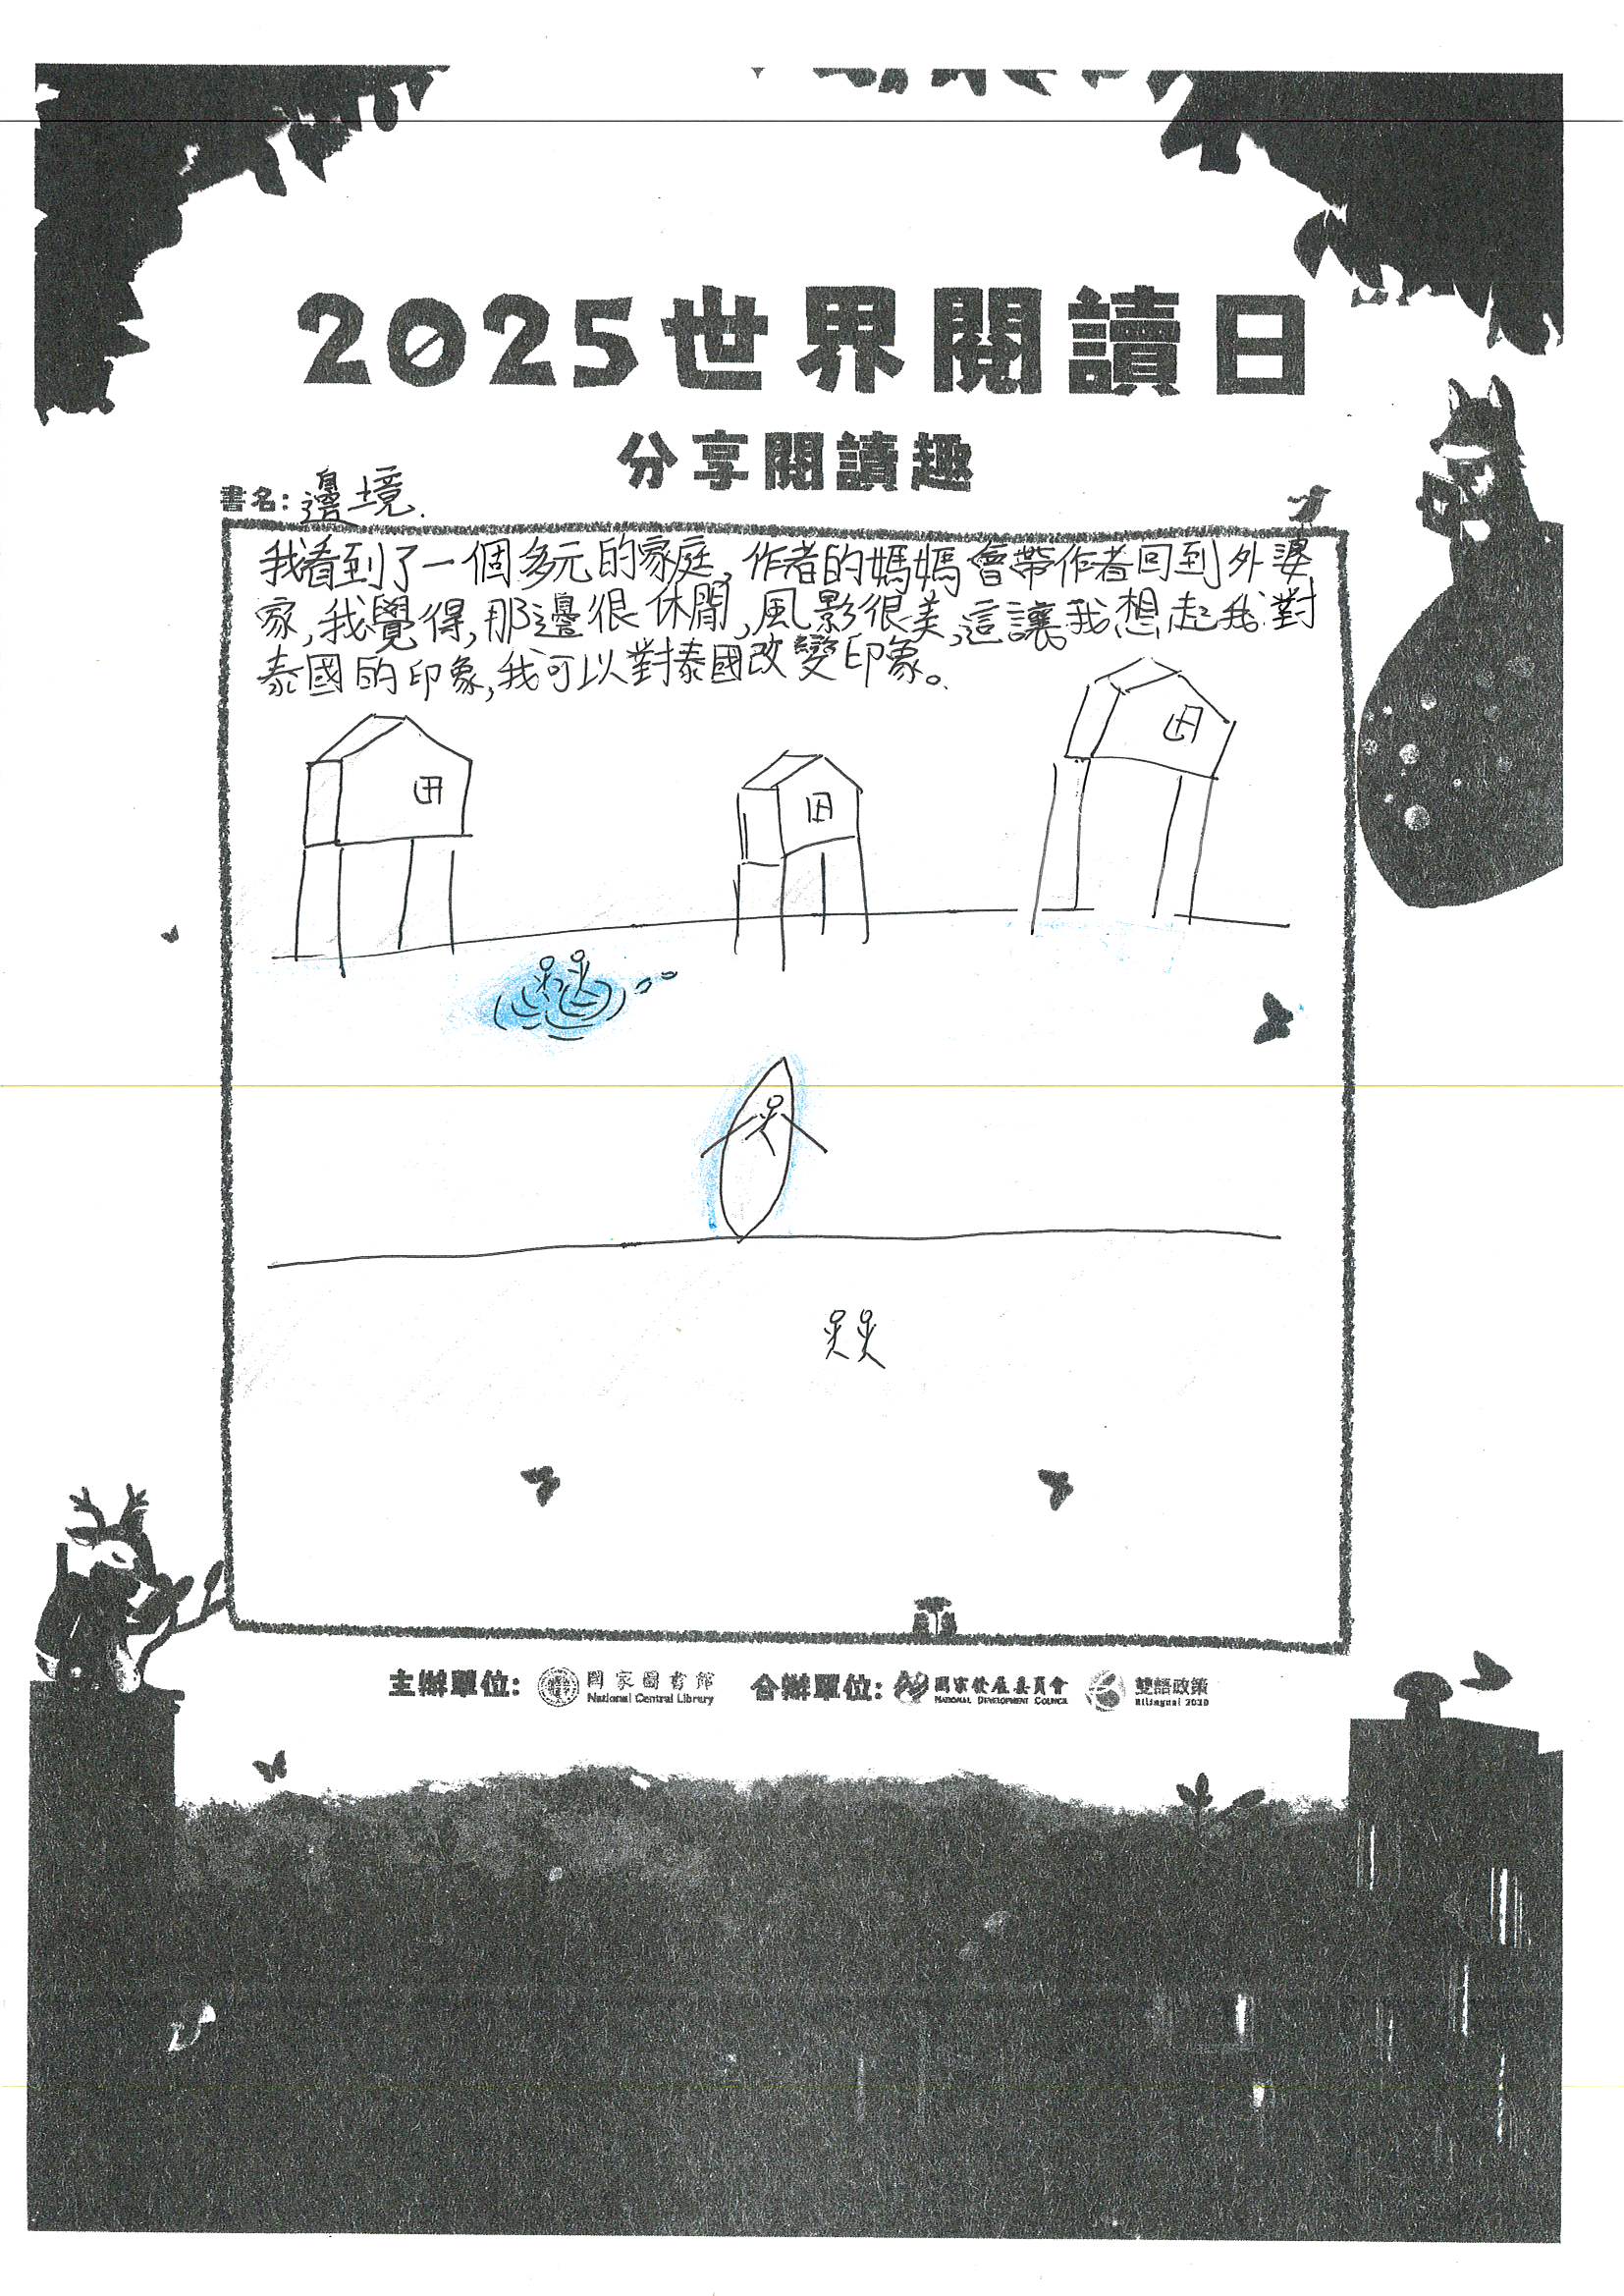 2025世界閱讀日
分享閱讀趣
書名：邊境.
我看到了一個多元的家庭,作者的媽媽會帶作者回到外婆
家,我覺得,那邊很休閒,風影很美,這讓我想起我對
泰國的印象,我可以對泰國改變印象。
主辦單位： 國家圖書館 National Central Library 合辦單位： 國家發展委員會 NATIONAL DEVELOPMENT COUNCIL 雙語政策 Bilingual 2030